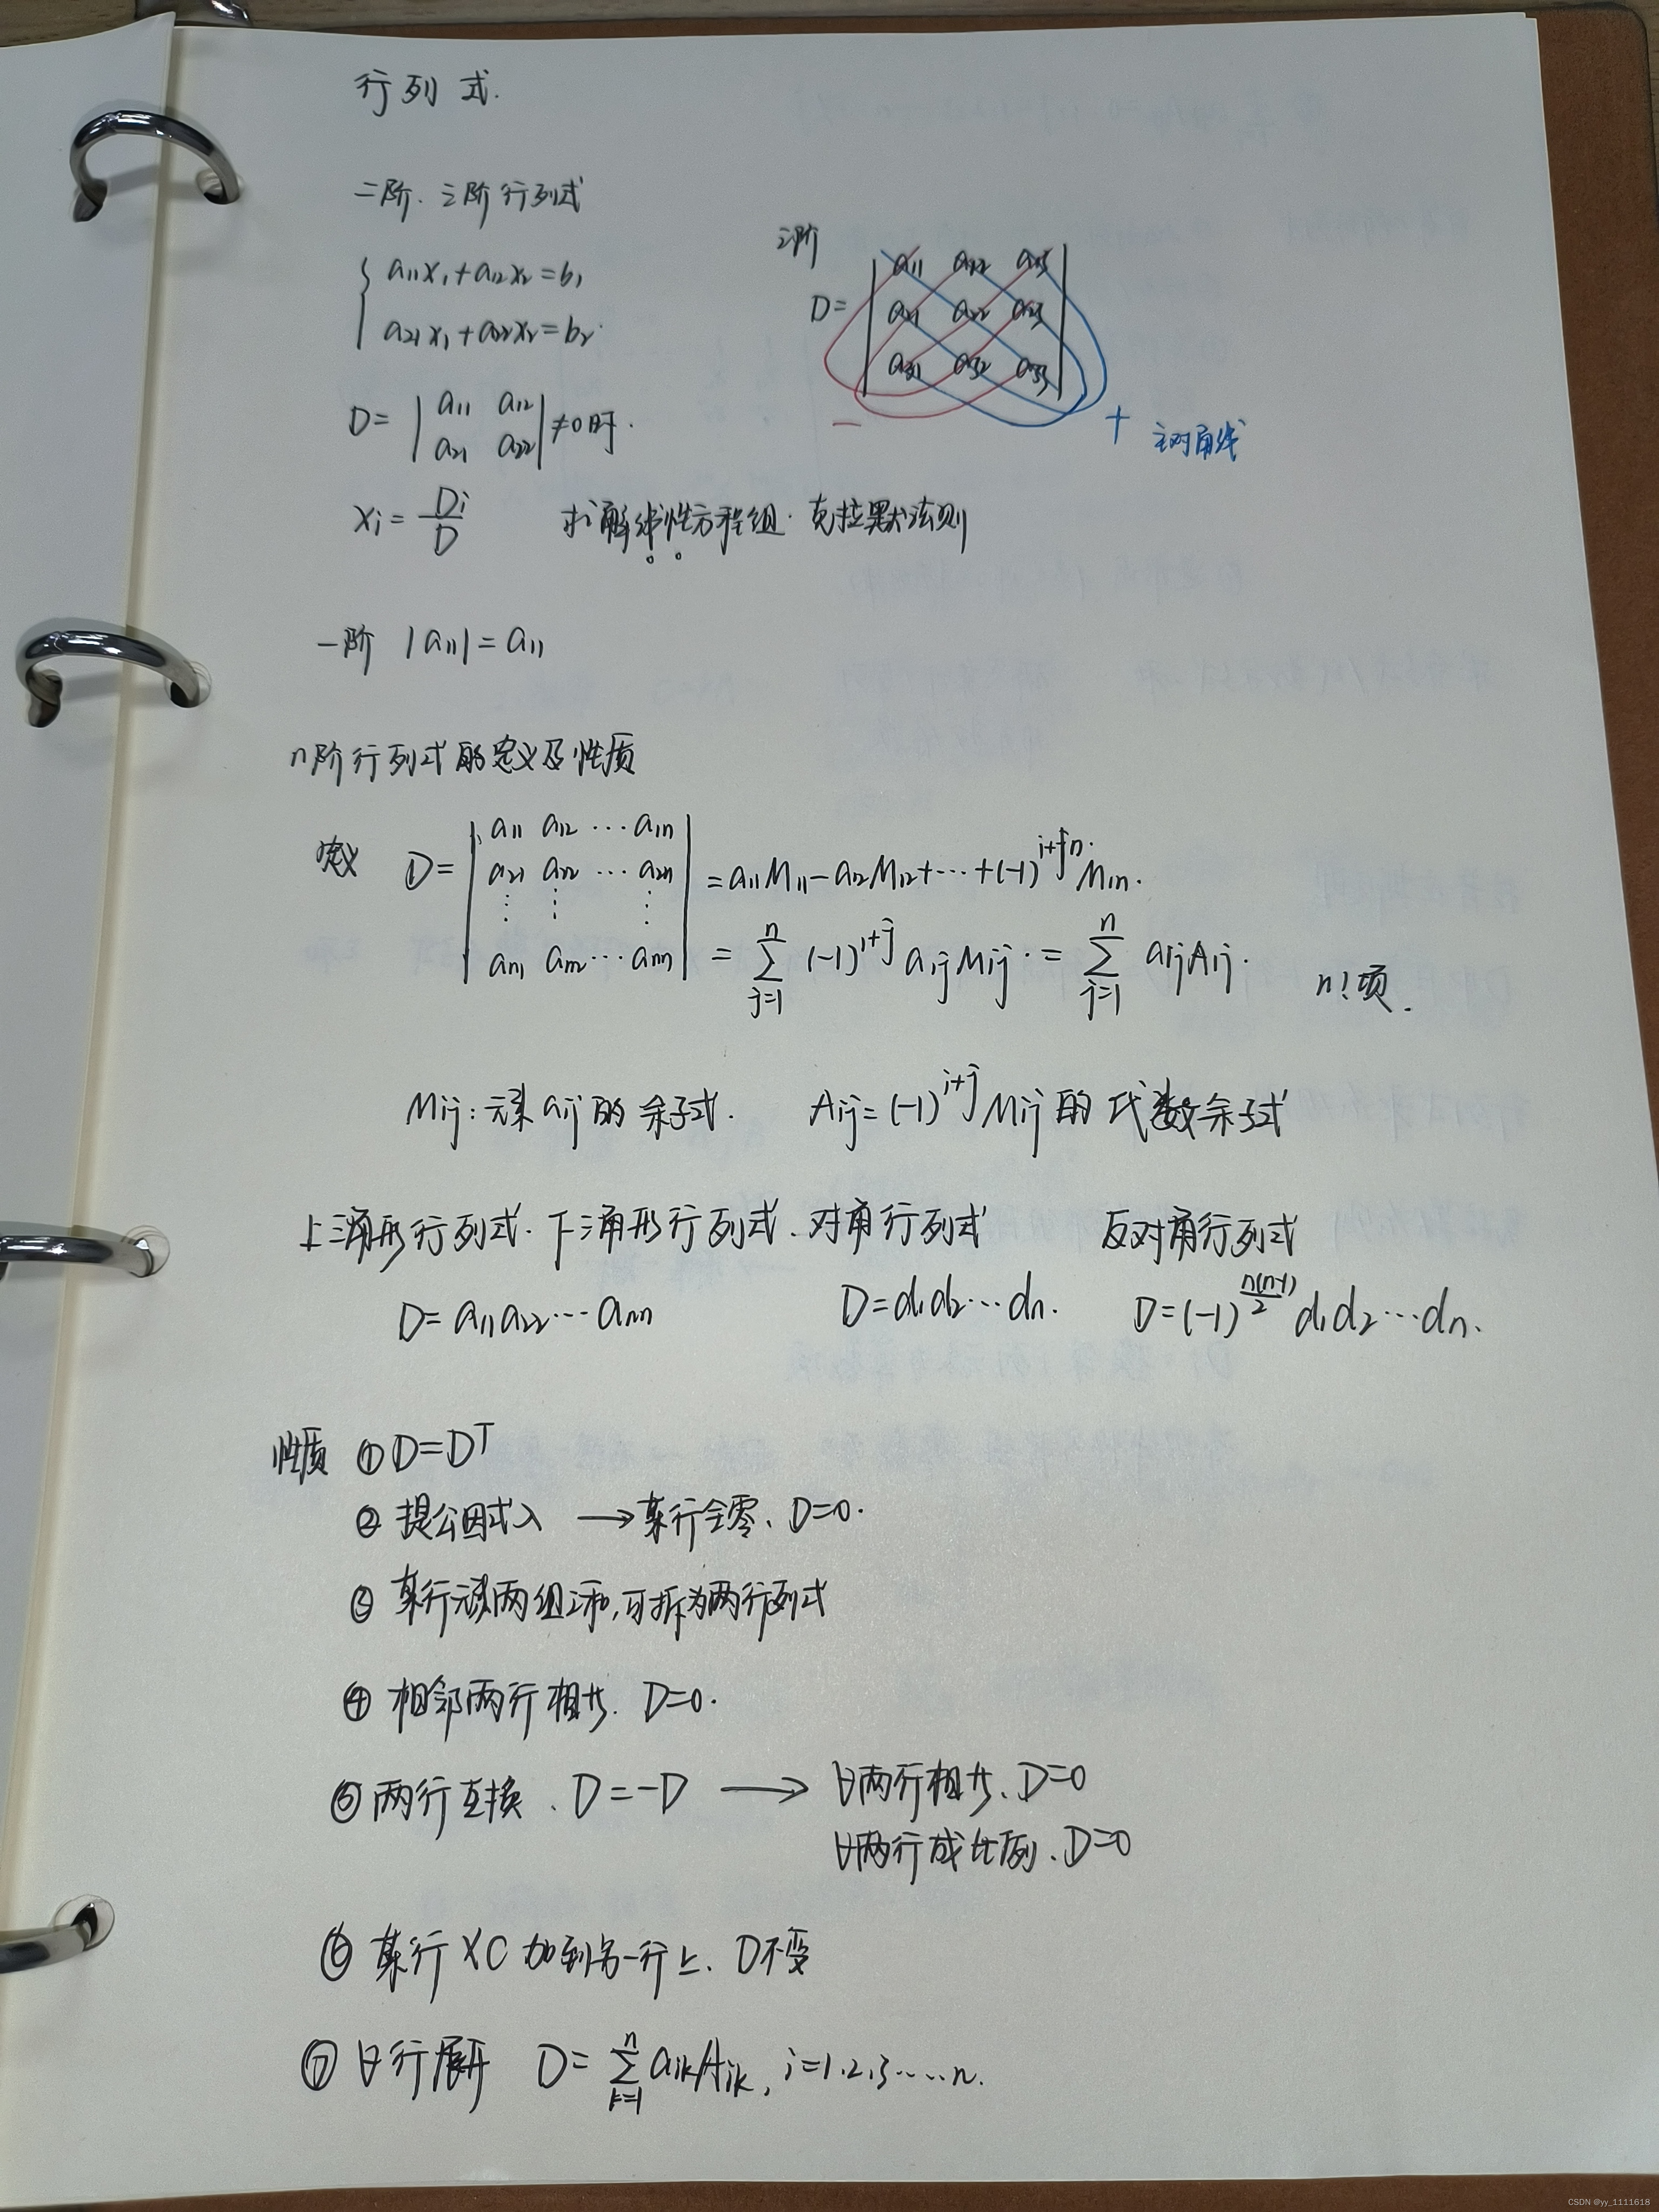 行列式.
二阶.三阶行列式
a₁₁x₁+a₁₂x₂=b₁
a₂₁x₁+a₂₂x₂=b₂.
D= | a₁₁ a₁₂ |
| a₂₁ a₂₂ | ≠0时.
xᵢ= Dᵢ/D 求解线性方程组.克拉默法则
三阶
D= | a₁₁ a₁₂ a₁₃ |
| a₂₁ a₂₂ a₂₃ |
| a₃₁ a₃₂ a₃₃ |
− + 主对角线
一阶 |a₁₁|=a₁₁
n阶行列式的定义及性质
定义 D= | a₁₁ a₁₂ ⋯ a₁ₙ |
| a₂₁ a₂₂ ⋯ a₂ₙ | =a₁₁M₁₁−a₁₂M₁₂+⋯+(−1) M₁ₙ.
⋮ ⋮ ⋮
| aₙ₁ aₙ₂ ⋯ aₙₙ | = ∑ⁿⱼ₌₁ (−1)¹⁺ʲ a₁ⱼM₁ⱼ. = ∑ⁿⱼ₌₁ a₁ⱼA₁ⱼ. n!项.
Mᵢⱼ:元素aᵢⱼ的余子式. Aᵢⱼ=(−1)ⁱ⁺ʲMᵢⱼ的代数余子式
上三角形行列式.下三角形行列式.对角行列式 反对角行列式
D=a₁₁a₂₂⋯aₙₙ D=d₁d₂⋯dₙ. D=(−1)^(n(n-1)/2) d₁d₂⋯dₙ.
性质 ①D=Dᵀ
② 提公因式入 →某行全零、D=0.
③ 某行元素两组之和,可拆为两行列式
④ 相邻两行相等. D=0.
⑤ 两行互换、D=−D → ∀两行相等、D=0
∀两行成比例、D=0
⑥ 某行×C加到另一行上、D不变
⑦ ∀行展开 D= ∑ⁿₖ₌₁ aᵢₖAᵢₖ, i=1.2.3⋯⋯n.
CSDN @yy_1111618